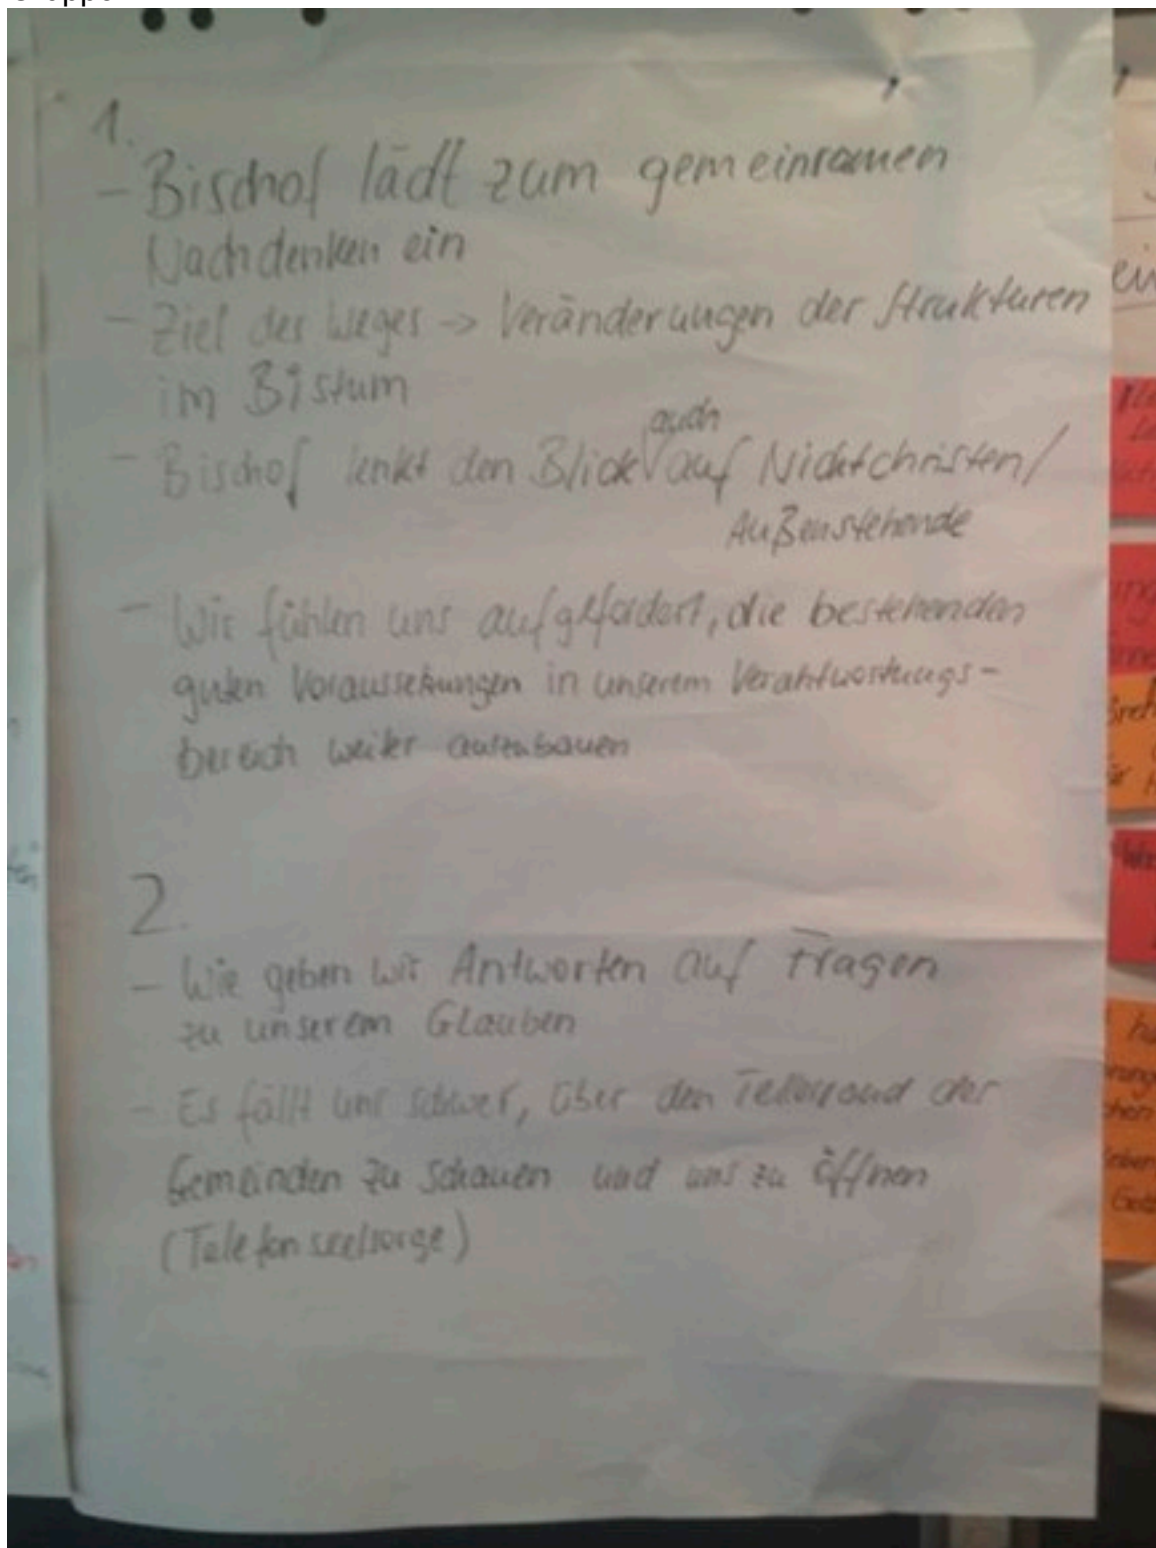 1.
- Bischof lädt zum gemeinsamen
Nachdenken ein
- Ziel des Weges -> Veränderungen der Strukturen
im Bistum
auch
- Bischof lenkt den Blick auf Nichtchristen/
Außenstehende
- Wir fühlen uns aufgefordert, die bestehenden
guten Voraussetzungen in unserem Verantwortungs-
bereich weiter auszubauen
2.
- Wie geben wir Antworten auf Fragen
zu unserem Glauben
- Es fällt uns schwer, über den Tellerrand der
Gemeinden zu schauen und uns zu öffnen
(Telefonseelsorge)